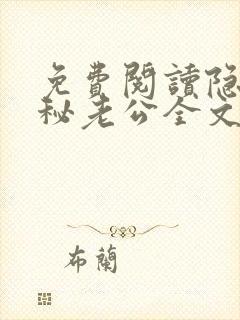 免費閱讀隐
秘老公全文
布蘭